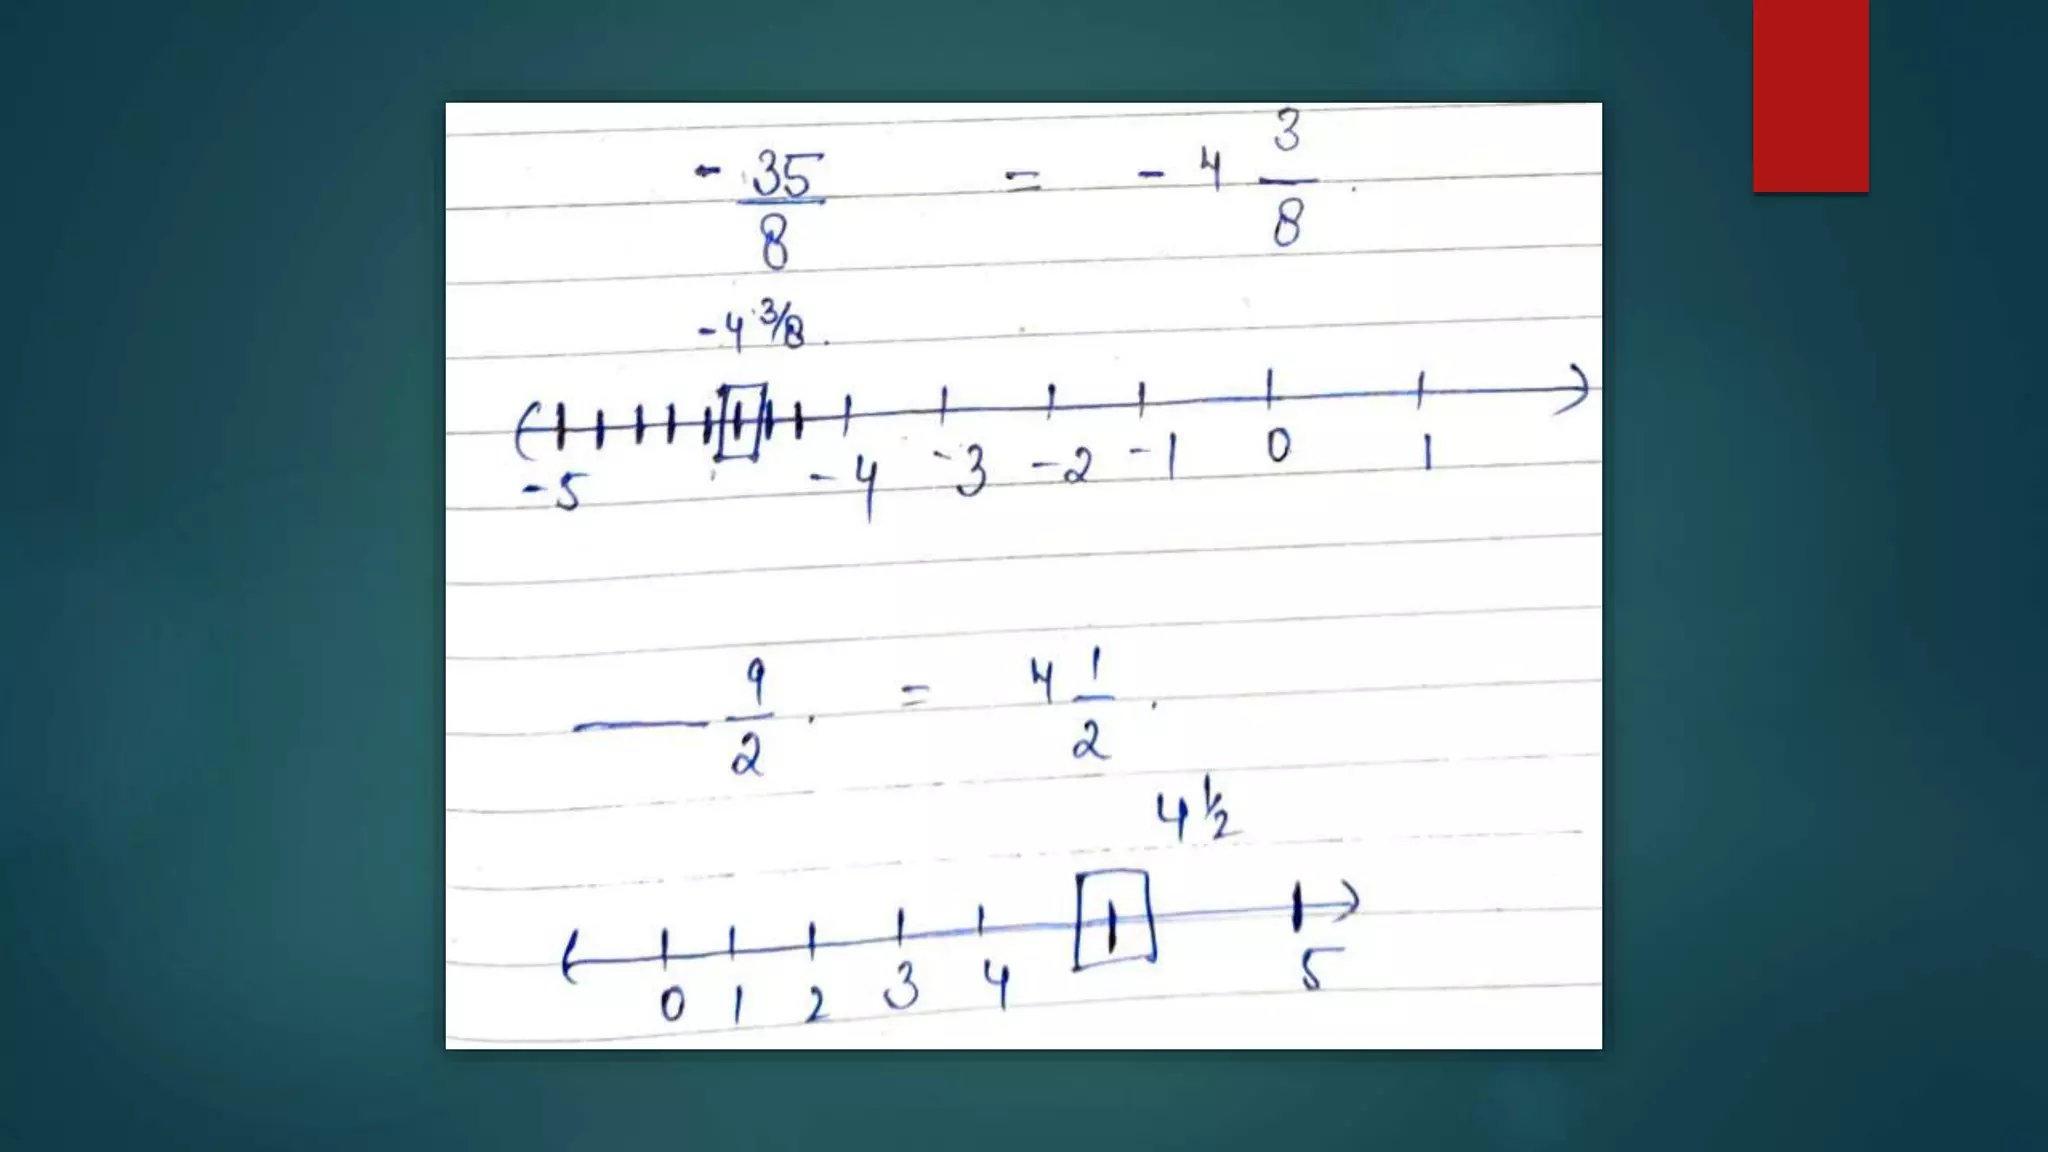 - 35/8 = - 4 3/8.
-4 3/8.
-5 -4 -3 -2 -1 0 1
— 9/2. = 4 1/2.
4 1/2
0 1 2 3 4 5